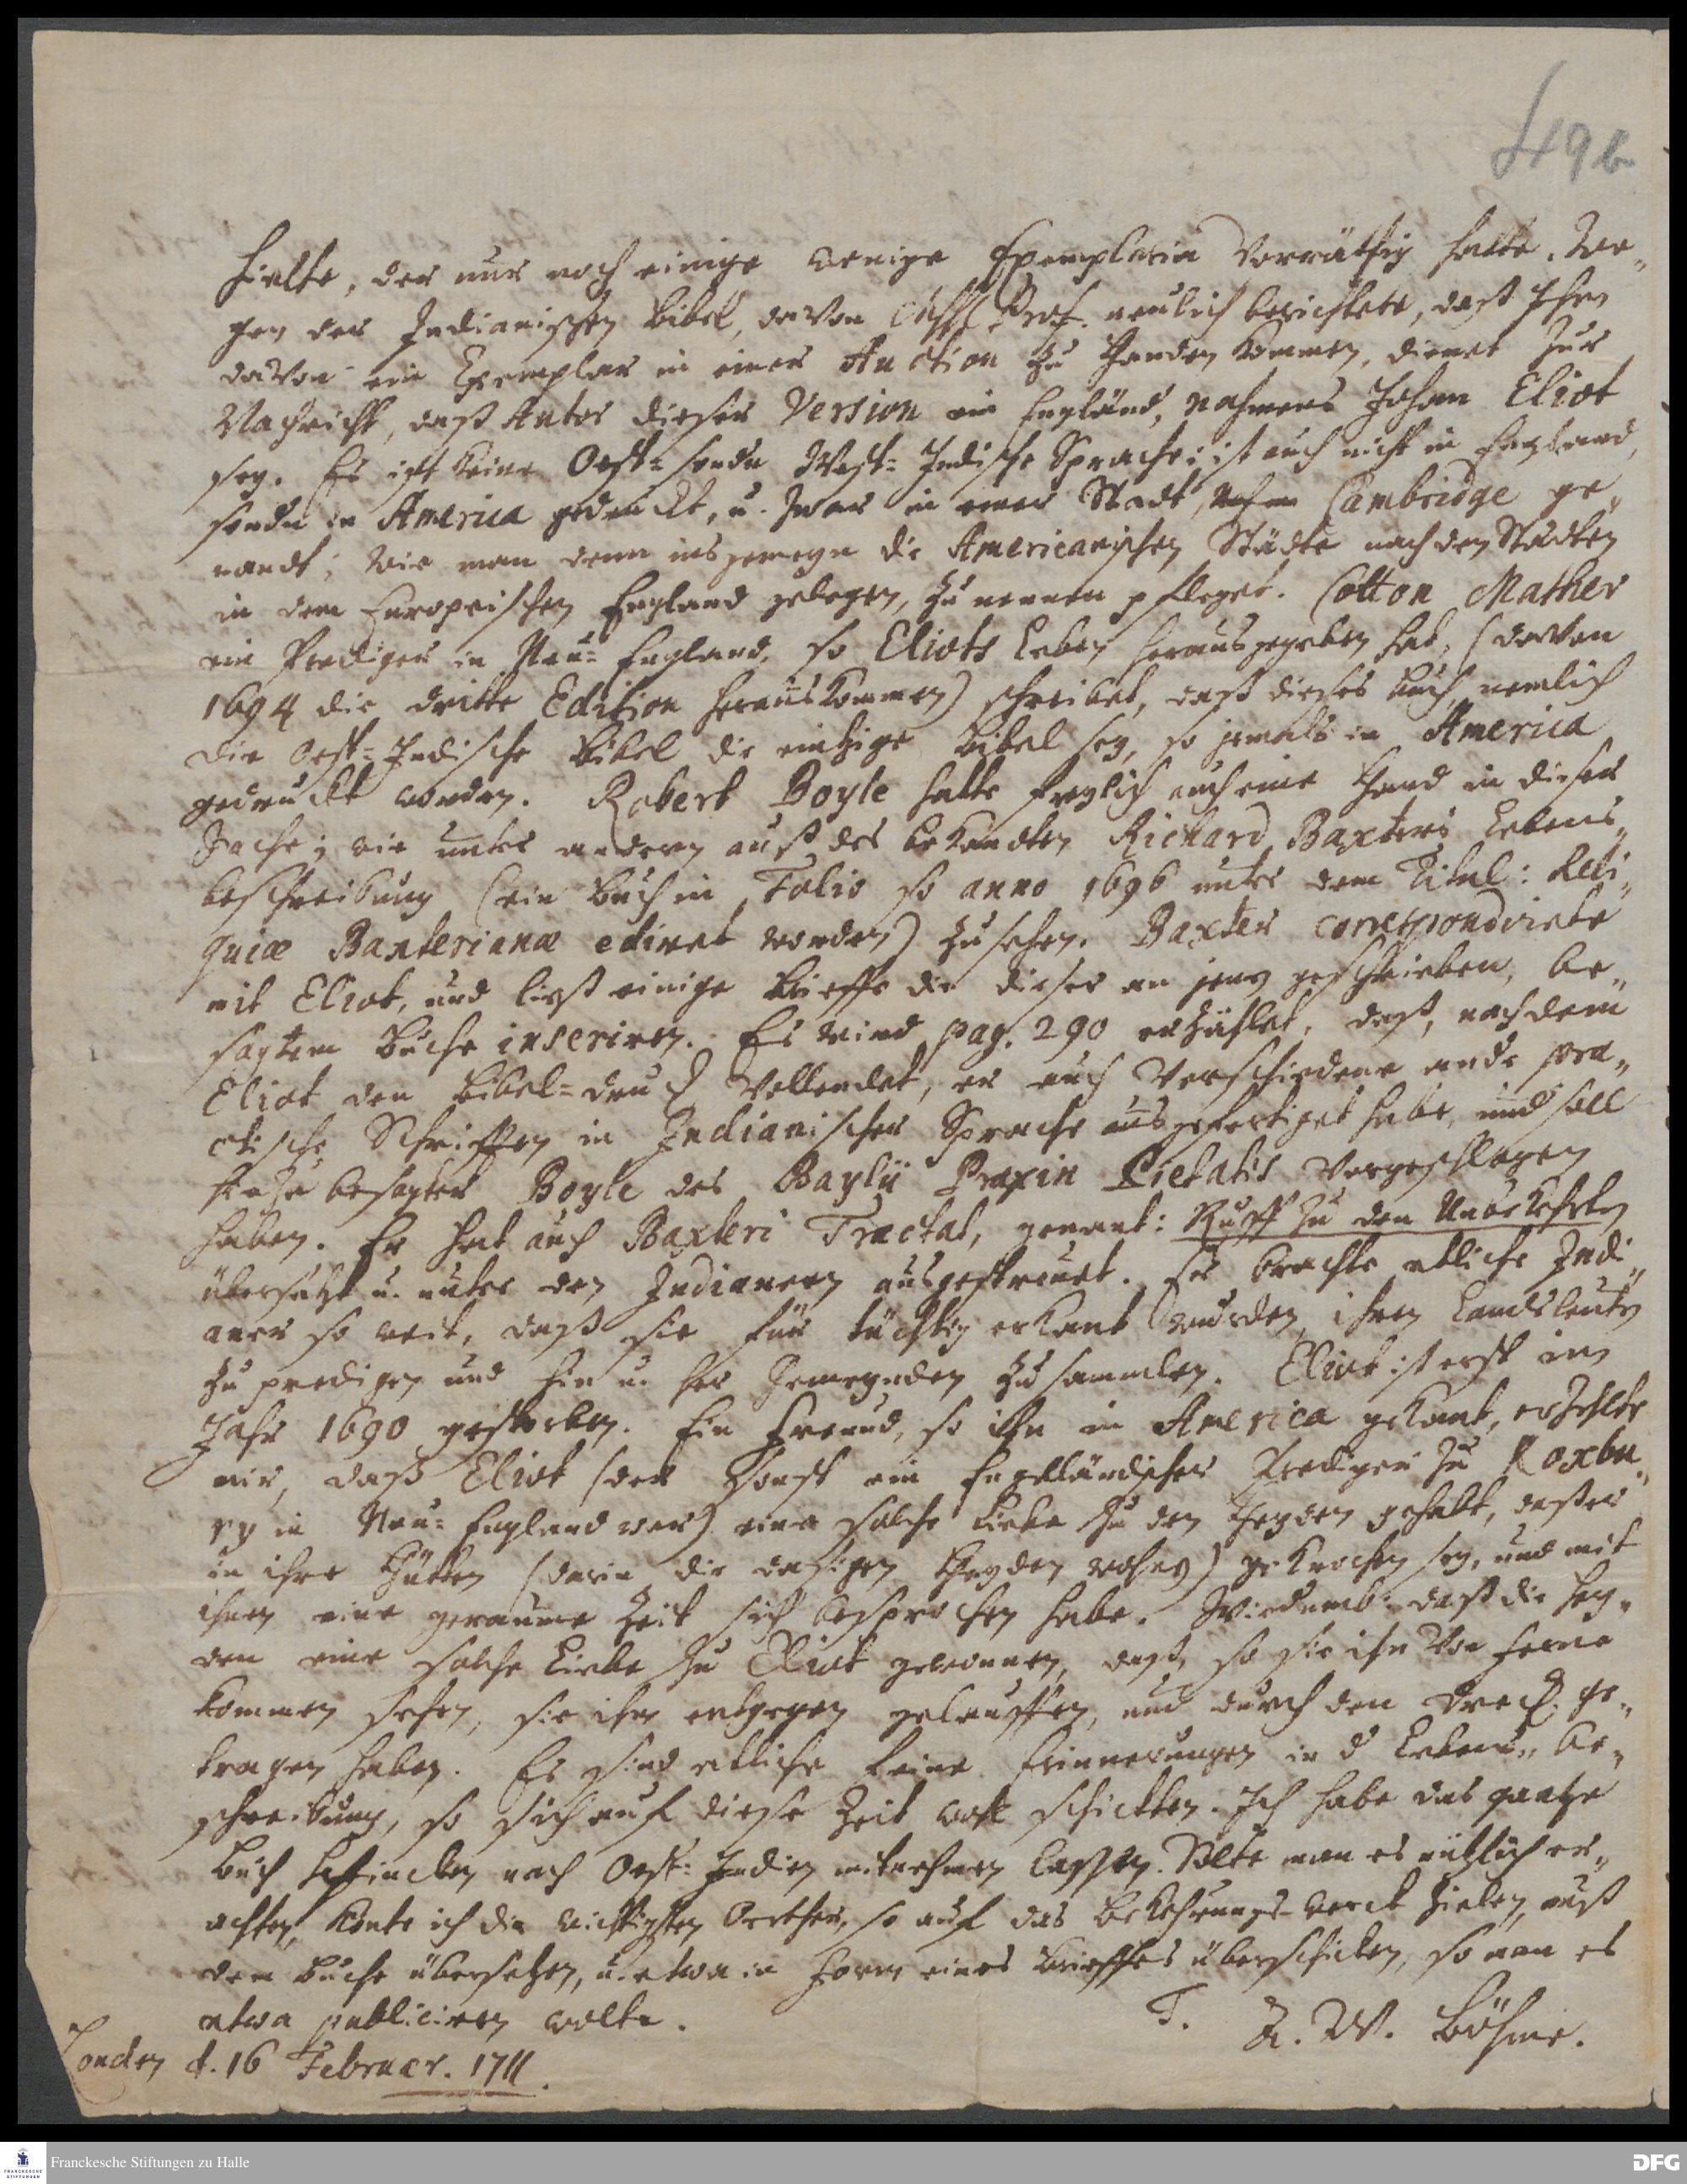 49b
hielte, der nur noch einige wenige Exemplaria vorräthig hatte. We„
gen der Indianischen Bibel, davon Prof. neulich berichtete, daß Ihm
davon ein Exemplar in einer Auction zu Handen kommen, dienet zur
Nachricht, daß Autor dieser Version ein Engländ, nahmens Johan Eliot
sey. Es ist keine Ost= sondn West= Indische Sprache: ist auch nicht in England,
sondn in America gedruckt, u. zwar in einer Stadt, Cambridge ge„
nandt; wie man denn insgemeyn die Americanischen Städte nach den Städten
in dem Europeischen England gelegen, zu nennen pfleget. Cotton Mather
ein Prediger in Neu= England, so Eliots Leben herausgegeben hat, (davon
1694 die dritte Edition herauskommen) schreibet, daß dieses Buch, nemlich
die Oest=Indische Bibel die eintzige Bibel sey, so jemals in America
gedruckt worden. Robert Boyle hatte freylich auch eine Hand in dieser
Sache; wie unter andern auß des bekandten Richard Baxters Lebens„
beschreibung (ein Buch in Folio so anno 1696 unter dem Titul: Reli„
quiæ Baxterianæ ediret worden) zu sehen. Baxter correspondirete
mit Eliot, und liess einige Brieffe die dieser an jenen geschrieben, be„
sagtem Buche inseriren. Es wird pag. 290 erzählet, daß, nachdem
Eliot den Bibel=druck vollendet, er auch verschiedene ande pra„
ctische Schrifften in Indianischer Sprache ausgefertiget habe, und soll
besagter Boyle des Baylii Praxin Pietatis vorgeschlagen
haben. Er hat auch Baxteri Tractat, genant: Ruff zu den Unbekehrten
übersetzt u. unter den Indianern ausgestreuet. Er brachte etliche Indi„
aner so weit, daß sie für tüchtig erkant wurden, ihren Landsleuten
zu predigen und hin u. her Gemeynden zu sammlen. Eliot ist erst im
Jahr 1690 gestorben. Ein Freund, so ihn in America gekant, erzehlte
mir, daß Eliot (der sonst ein Engelländischer Prediger zu Roxbu„
ry in Neu= England war) eine solche Liebe zu den Heyden gehabt, daß er
in ihre Hütten (darin die dasigen Heyden wohnen) gekrochen sey, und mit
ihnen eine geraume Zeit sich besprochen habe. Wiedumb daß die Hey„
den eine solche Liebe zu Eliot gewonnen, daß, so sie ihn von ferne
kommen sehen, sie ihm entgegen gelauffen, und durch den Dreck ge„
tragen haben. Es sind etliche feine Erinnerungen in d Lebens„ be„
schreibung, so sich auf diese Zeit wol schickten. Ich habe das gantze
Buch nach Ost= Indien mitnehmen lassen. Solte man es nützlich er„
achten, konte ich die wichtigsten Oerther, so auf das Bekehrungs-werck zielen, auß
dem Buche übersetzen, u. etwa in Form eines Brieffes überschicken, so man es
etwa publiciren wolte.
T. A. W. Böhme.
London d. 16 Februar. 1711.
Franckesche Stiftungen zu Halle
DFG